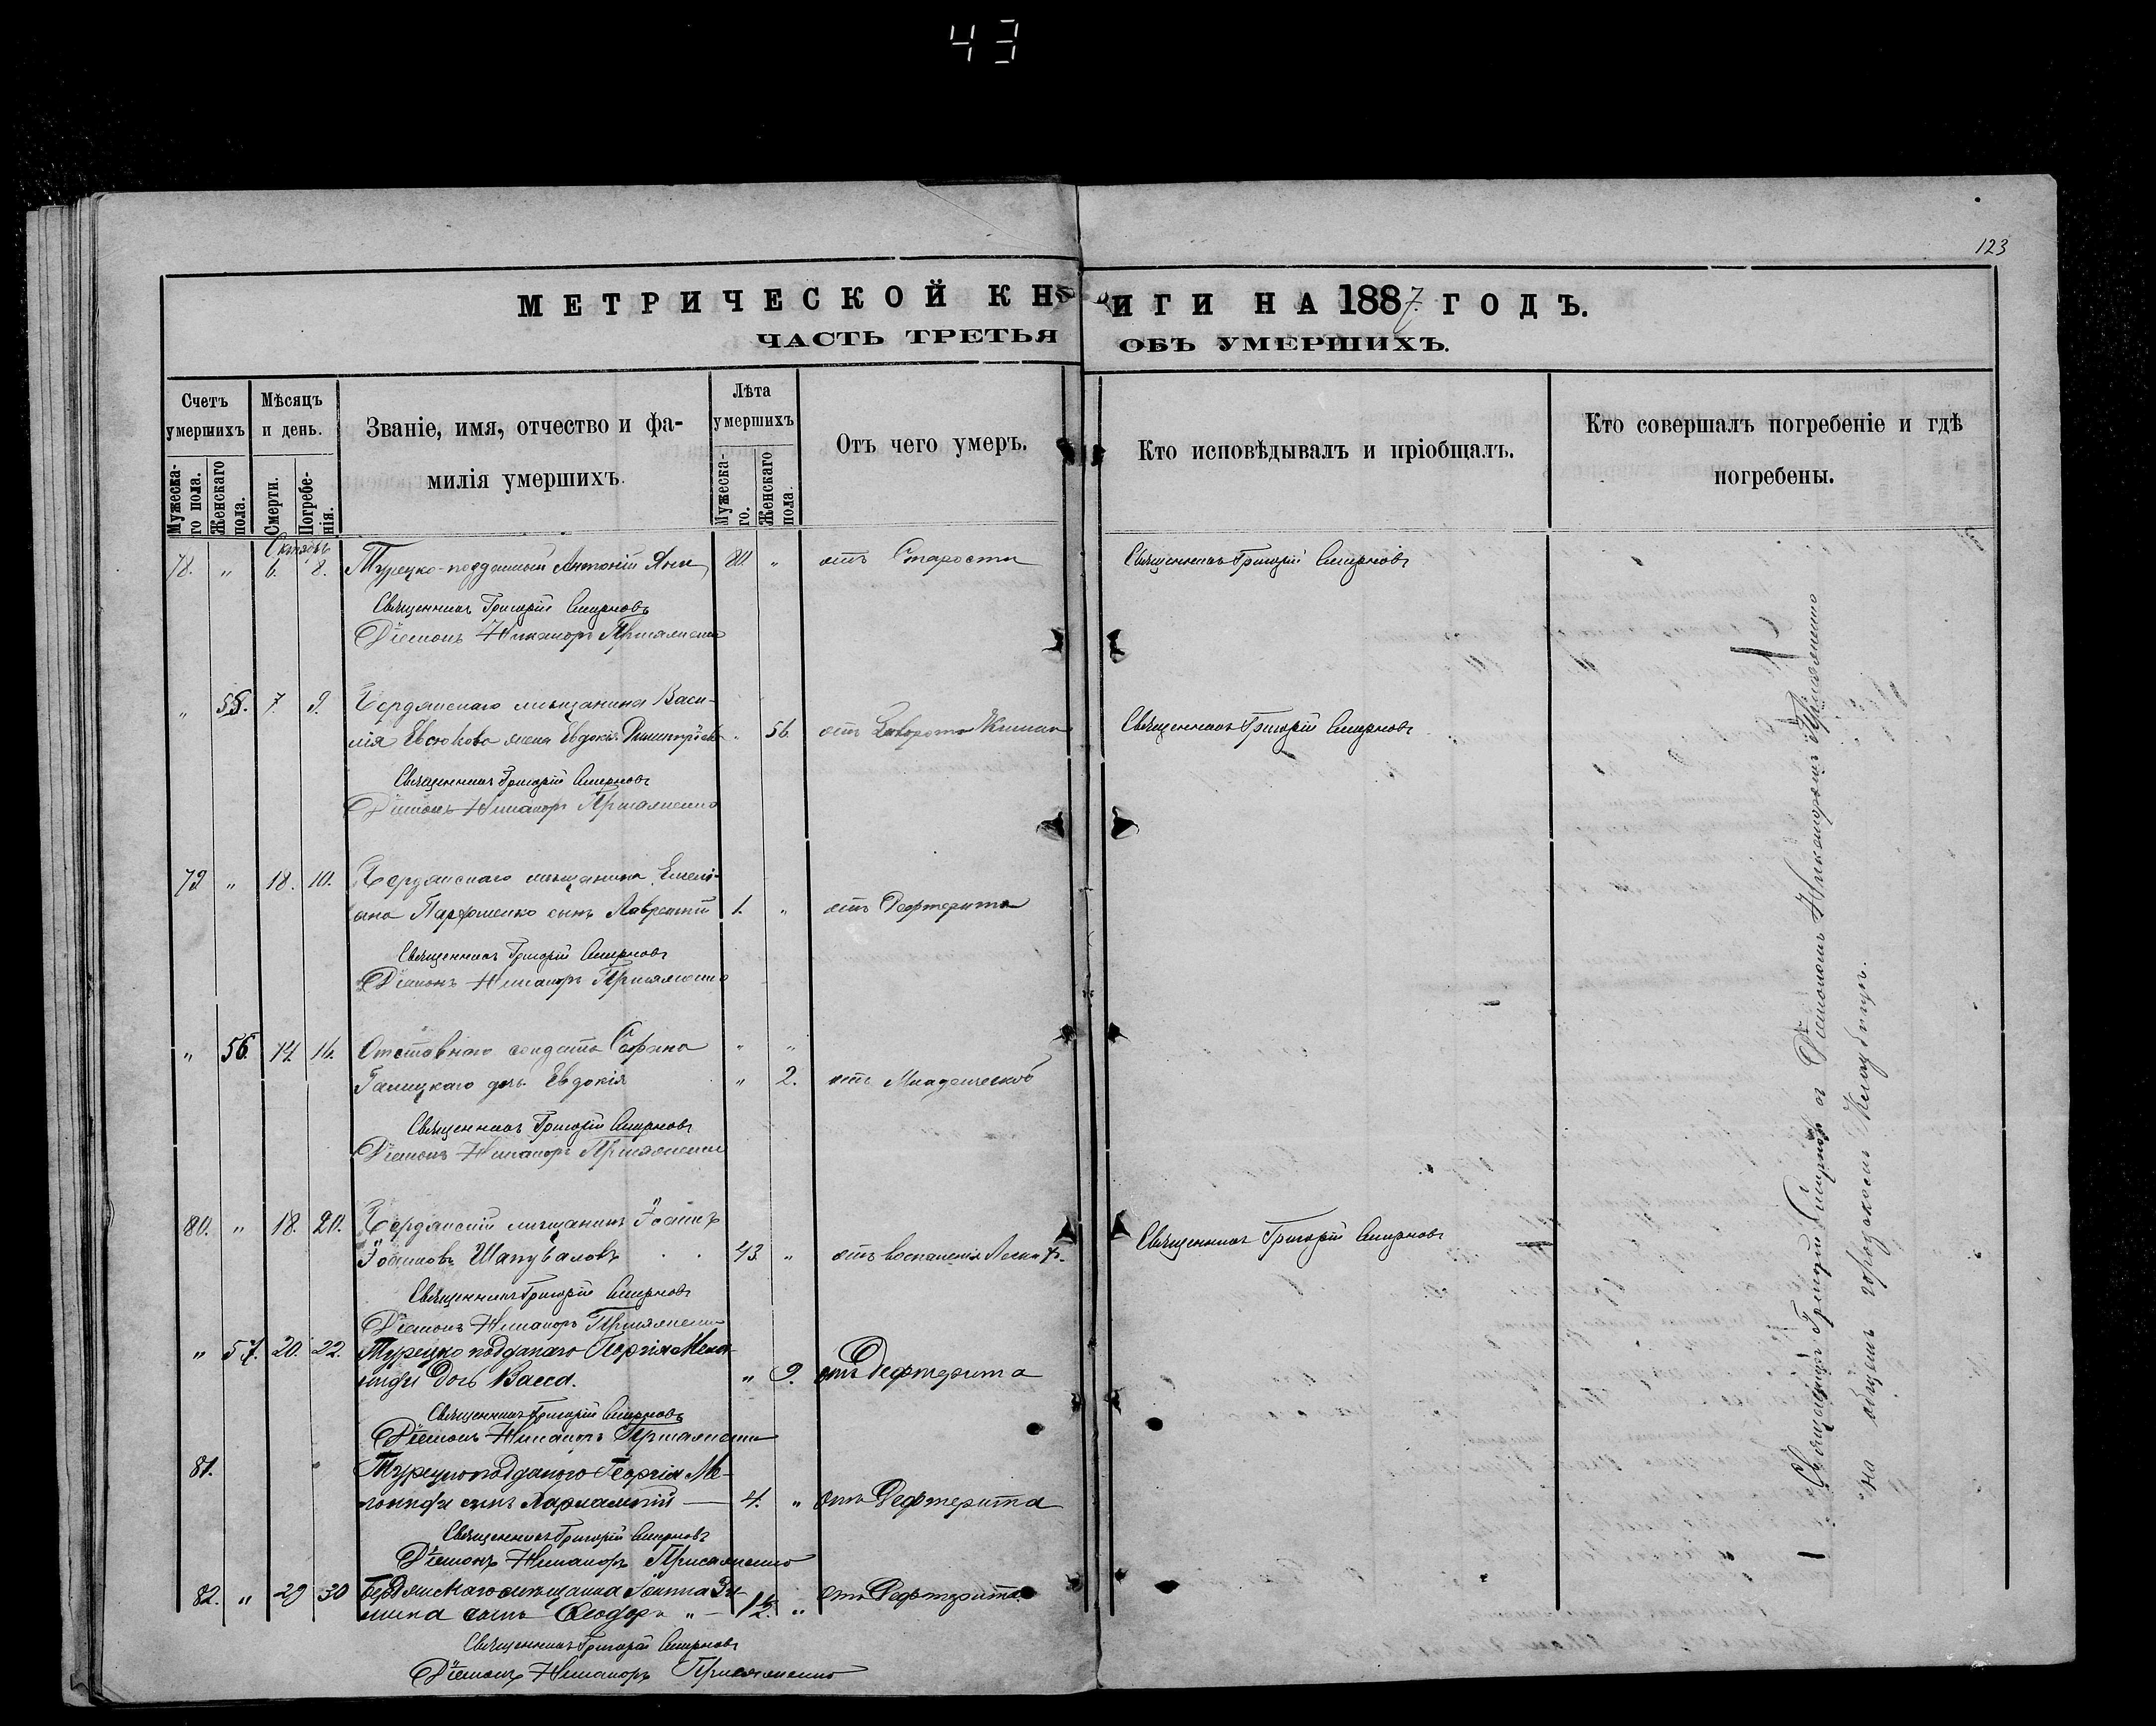 43
123
МЕТРИЧЕСКОЙ КНИГИ НА 1887. ГОДЪ.
ЧАСТЬ ТРЕТЬЯ ОБЪ УМЕРШИХЪ.
Счетъ умершихъ
Мужеска-го пола.
Женскаго пола.
Мѣсяцъ и день.
Смерти.
Погребе-нія.
Званіе, имя, отчество и фа-
милія умершихъ.
Лѣта умершихъ
Мужеска-го.
Женскаго пола.
Отъ чего умеръ.
Кто исповѣдывалъ и пріобщалъ.
Кто совершалъ погребеніе и гдѣ
погребены.
Октябрь
78. " 6. 8. Турецко-подданный Антоній Яни 80. " отъ Старости Священникъ Григорій Смирновъ
Священникъ Григорій Смирновъ
Діаконъ Никаноръ
" 55. 7. 9. Бердянскаго мѣщанина Васи-
лія Евсюкова жена Евдокія 56. отъ Заворота Кишекъ Священникъ Григорій Смирновъ
Священникъ Григорій Смирновъ
Діаконъ Никаноръ
79 " 18. 10. Бердянскаго мѣщанина Емелі-
ана Пархоменко сынъ Лаврентій 1. " отъ Дефтерита
Священникъ Григорій Смирновъ
Діаконъ Никаноръ
" 56. 14. 16. Отставнаго солдата " "
Галицкаго дочь Евдокія " 2. отъ Младенческой
Священникъ Григорій Смирновъ
Діаконъ Никаноръ
80. " 18. 20. Бердянскій мѣщанинъ Іоаннъ
Іоанновъ Шаповаловъ 43. " отъ воспаленія Легкихъ. Священникъ Григорій Смирновъ
Священникъ Григорій Смирновъ
Діаконъ Никаноръ
" 57. 20. 22. Турецко подданаго Георгія
дочь Васса. " 9. отъ Дефтерита
Священникъ Григорій Смирновъ
Діаконъ Никаноръ
81. Турецкоподданого Георгія
сынъ Харлампій 4. " отъ Дефтерита
Священникъ Григорій Смирновъ
Діаконъ Никаноръ
82. " 29 30 Бердянскаго мѣщанина Іоанна
сынъ Ѳеодоръ " " отъ Дефтерита.
Священникъ Григорій Смирновъ
Діаконъ Никаноръ
Священникъ Григорій Смирновъ съ Діакономъ Никаноромъ
на общемъ городскомъ Кладбищѣ.